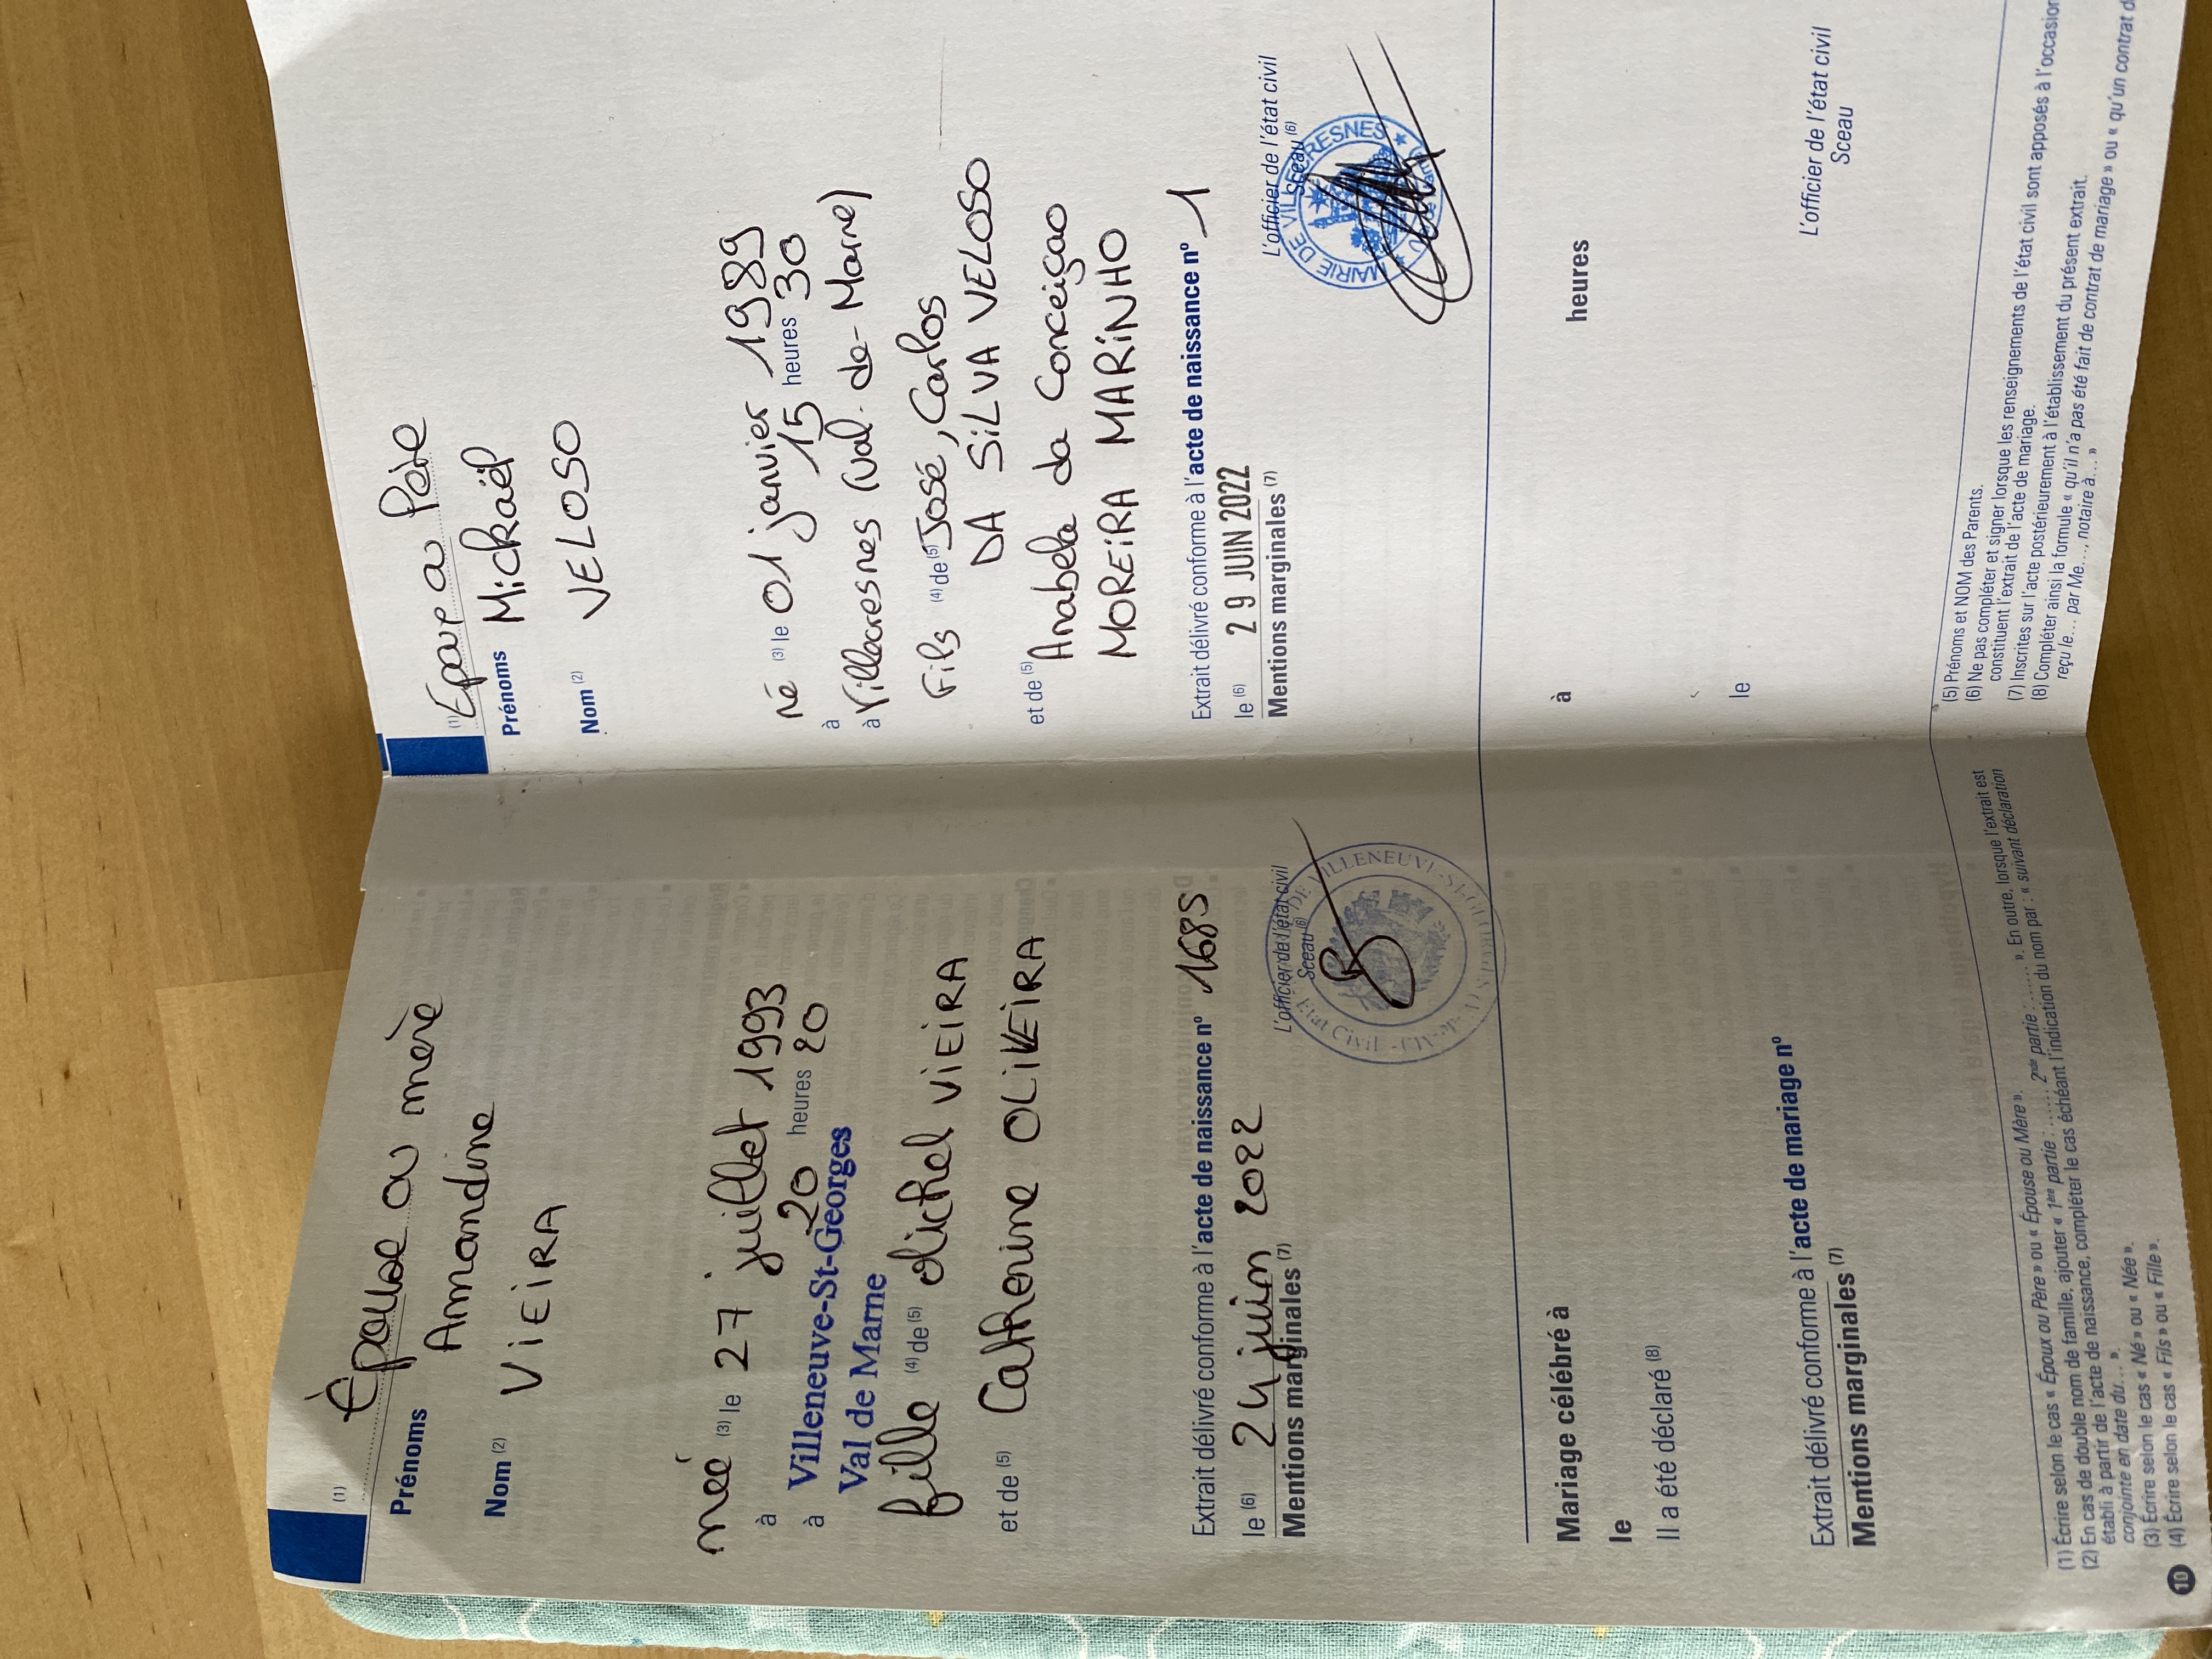 (1) Épouse ou mère
Prénoms Amandine
Nom (2) ViEiRA
née (3) le 27 juillet 1993
à 20 heures 20
à Villeneuve-St-Georges
Val de Marne
fille (4) de (5) Michel ViEiRA
et de (5) Catherine OLiVEiRA
Extrait délivré conforme à l'acte de naissance nº 1685
le (6) 24 juin 2022
Mentions marginales (7)
L'officier de l'état civil
Sceau (6)
DE VILLENEUVE-ST-GEORGES
État Civil
Mariage célébré à
le
Il a été déclaré (8)
Extrait délivré conforme à l'acte de mariage nº
Mentions marginales (7)
(1) Écrire selon le cas « Époux ou Père » ou « Épouse ou Mère ».
(2) En cas de double nom de famille, ajouter « 1ère partie : ...... 2nde partie : ...... ». En outre, lorsque l'extrait est
établi à partir de l'acte de naissance, compléter le cas échéant l'indication du nom par : « suivant déclaration
conjointe en date du... ».
(3) Écrire selon le cas « Né » ou « Née ».
(4) Écrire selon le cas « Fils » ou « Fille ».
10
(1) Epoux ou Père
Prénoms Mickaël
Nom (2) VELOSO
né (3) le 01 janvier 1989
à 15 heures 30
à Villecresnes (Val-de-Marne)
Fils (4) de (5) José, Carlos
DA SiLVA VELOSO
et de (5) Anabela da Conceiçao
MOREiRA MARiNHO
Extrait délivré conforme à l'acte de naissance nº 1
le (6) 29 JUIN 2022
Mentions marginales (7)
L'officier de l'état civil
Sceau (6)
MAIRIE DE VILLECRESNES
à heures
le
L'officier de l'état civil
Sceau
(5) Prénoms et NOM des Parents.
(6) Ne pas compléter et signer lorsque les renseignements de l'état civil sont apposés à l'occasion
constituent l'extrait de l'acte de mariage.
(7) Inscrites sur l'acte postérieurement à l'établissement du présent extrait.
(8) Compléter ainsi la formule « qu'il n'a pas été fait de contrat de mariage » ou « qu'un contrat d
reçu le... par Me..., notaire à... »